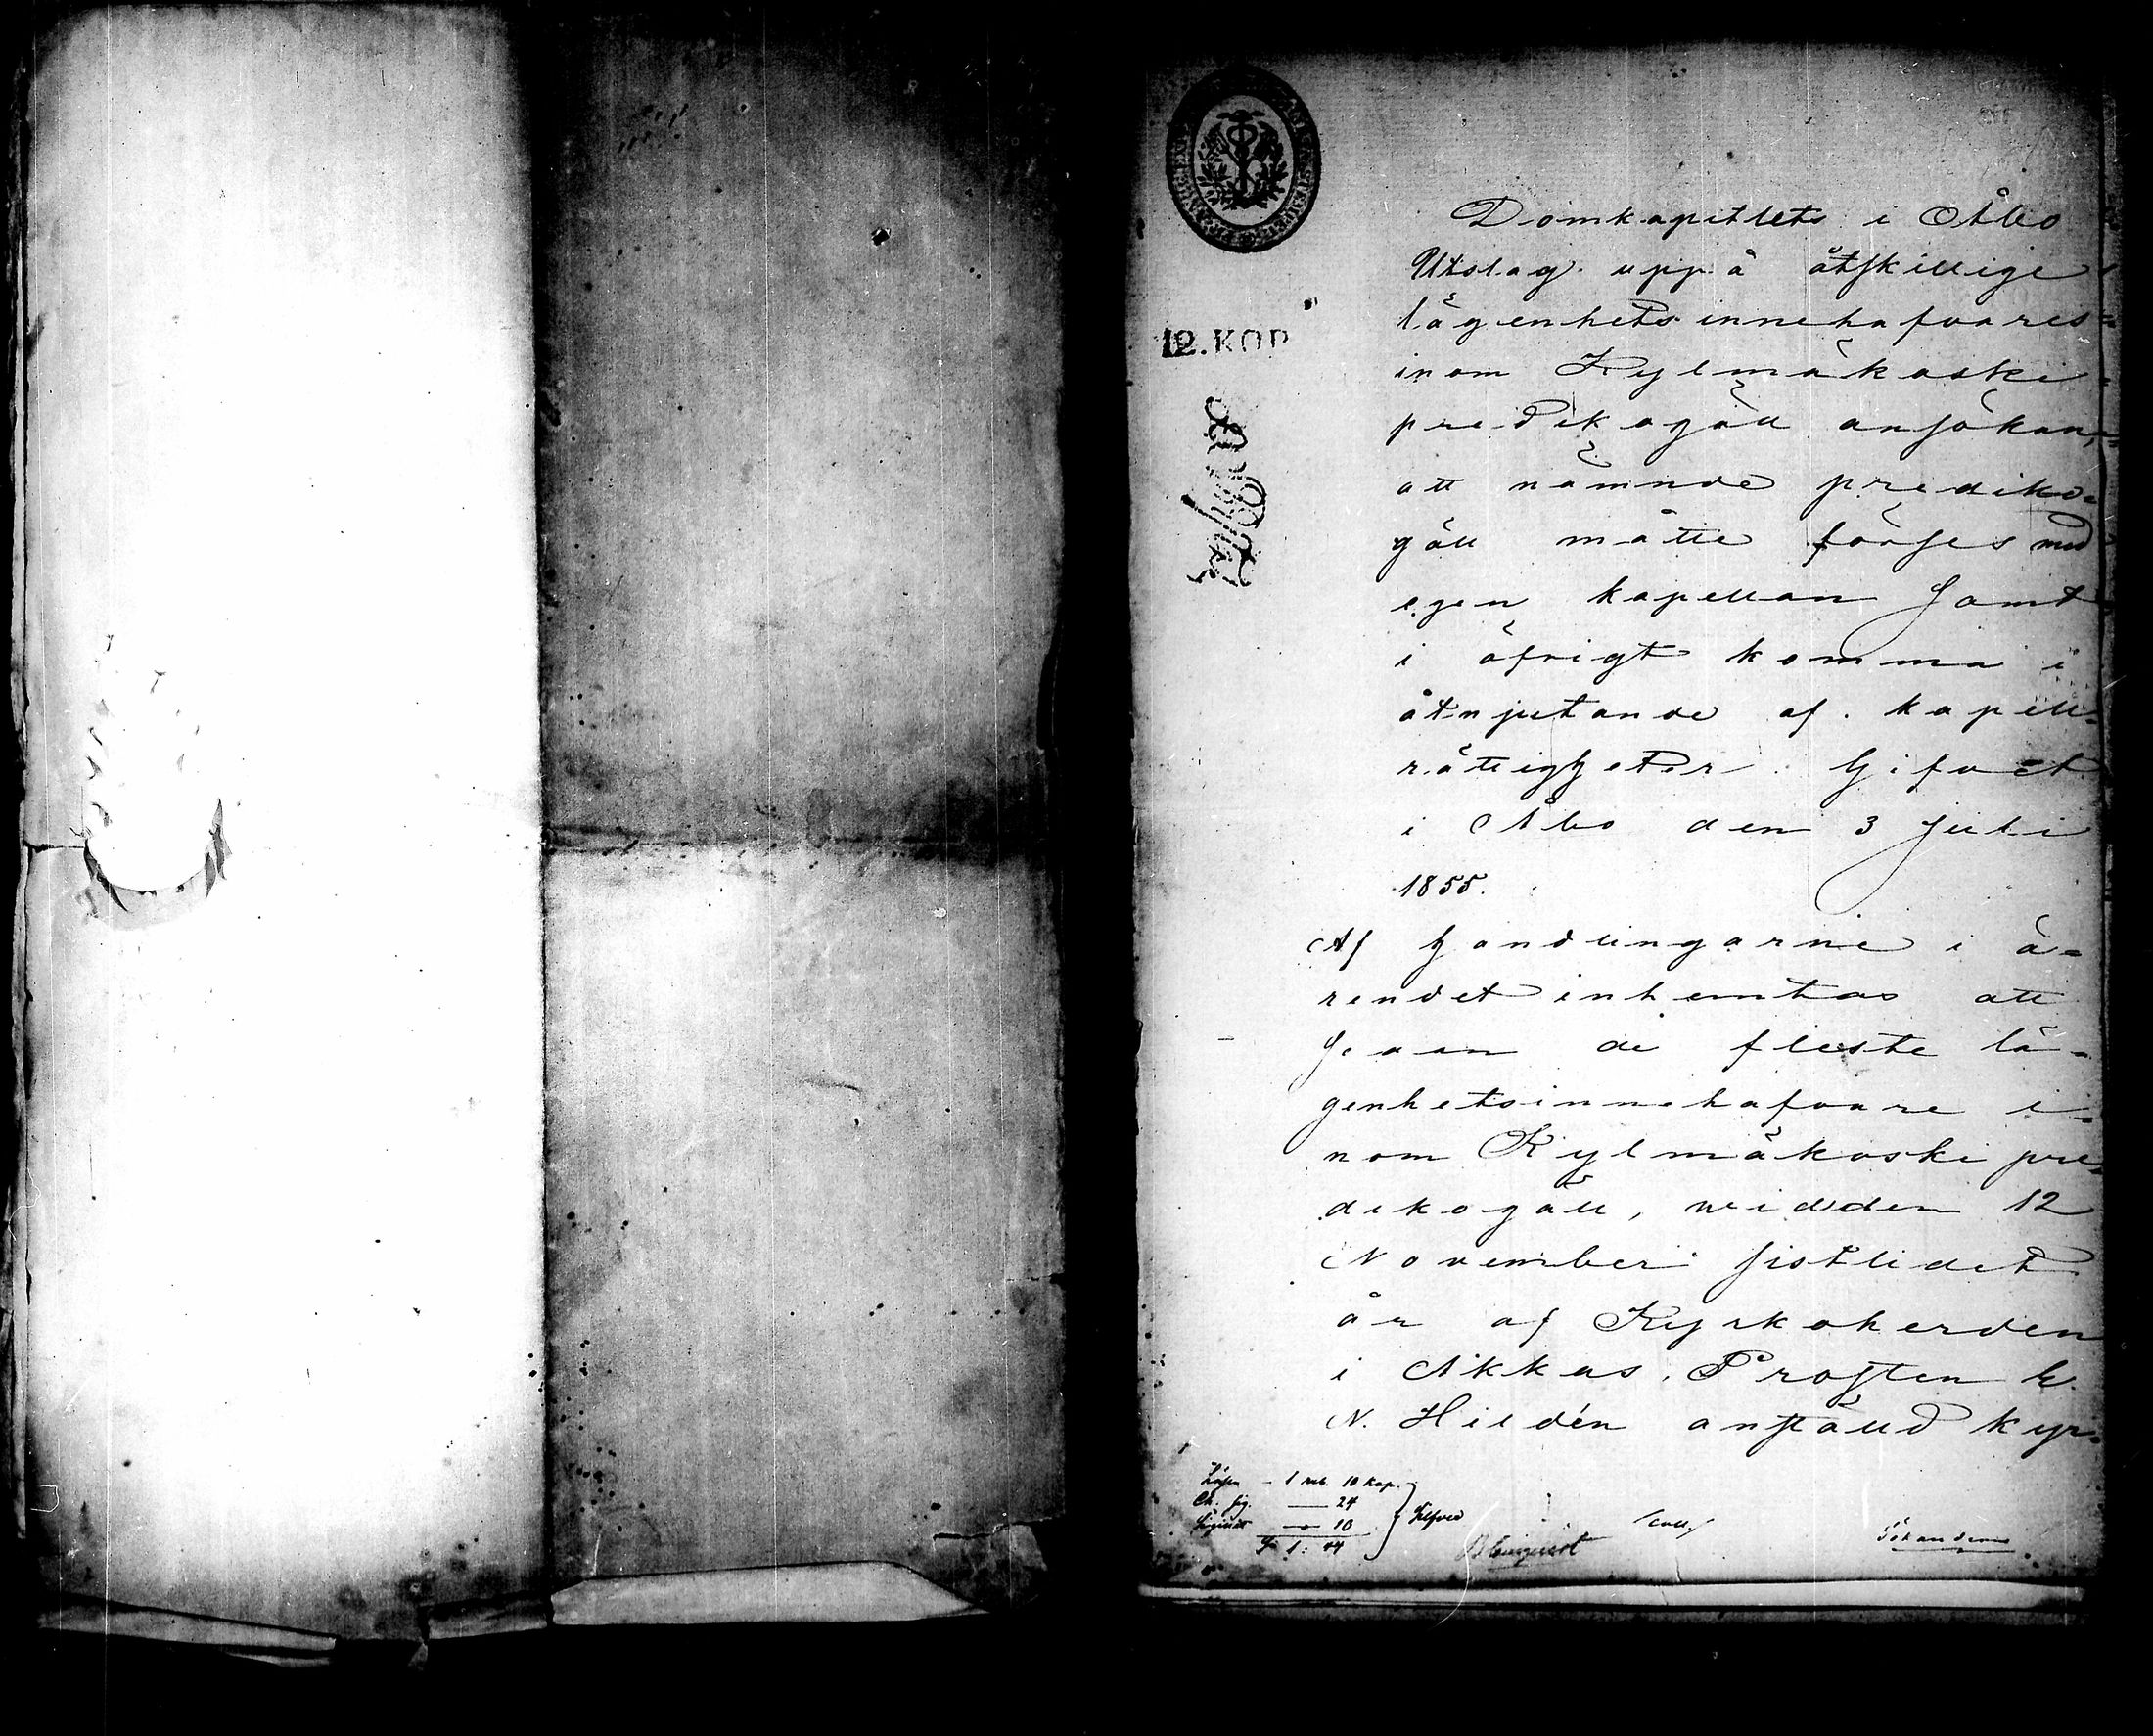 12. KOP
Domkapitlets i Åbo
Utslag uppå åtskillige
lägenhetsinnehafvares
inom Kylmäkoski
predikogäll ansökan,
att nämnde prediko-
gäll måtte förses med
egen kapellan samt
i öfrigt komma i
åtnjutande af kapell-
rättigheter. Gifvet
i Åbo den 3 Juli
1855.
Af handlingarne i ä-
rendet inhemtas att
sedan de fleste lä-
genhetsinnehafvare i-
nom Kylmäkoski pre-
dikogäll, wid den 12
November sistlidet
år af Kyrkoherden
i Akkas, Prosten G.
N. Hildén anstäld kyr-
Lösen - 1 rub. 10 kop.
Ch. sig. — 24
— 10
S:a 1: 44
Blomqvist